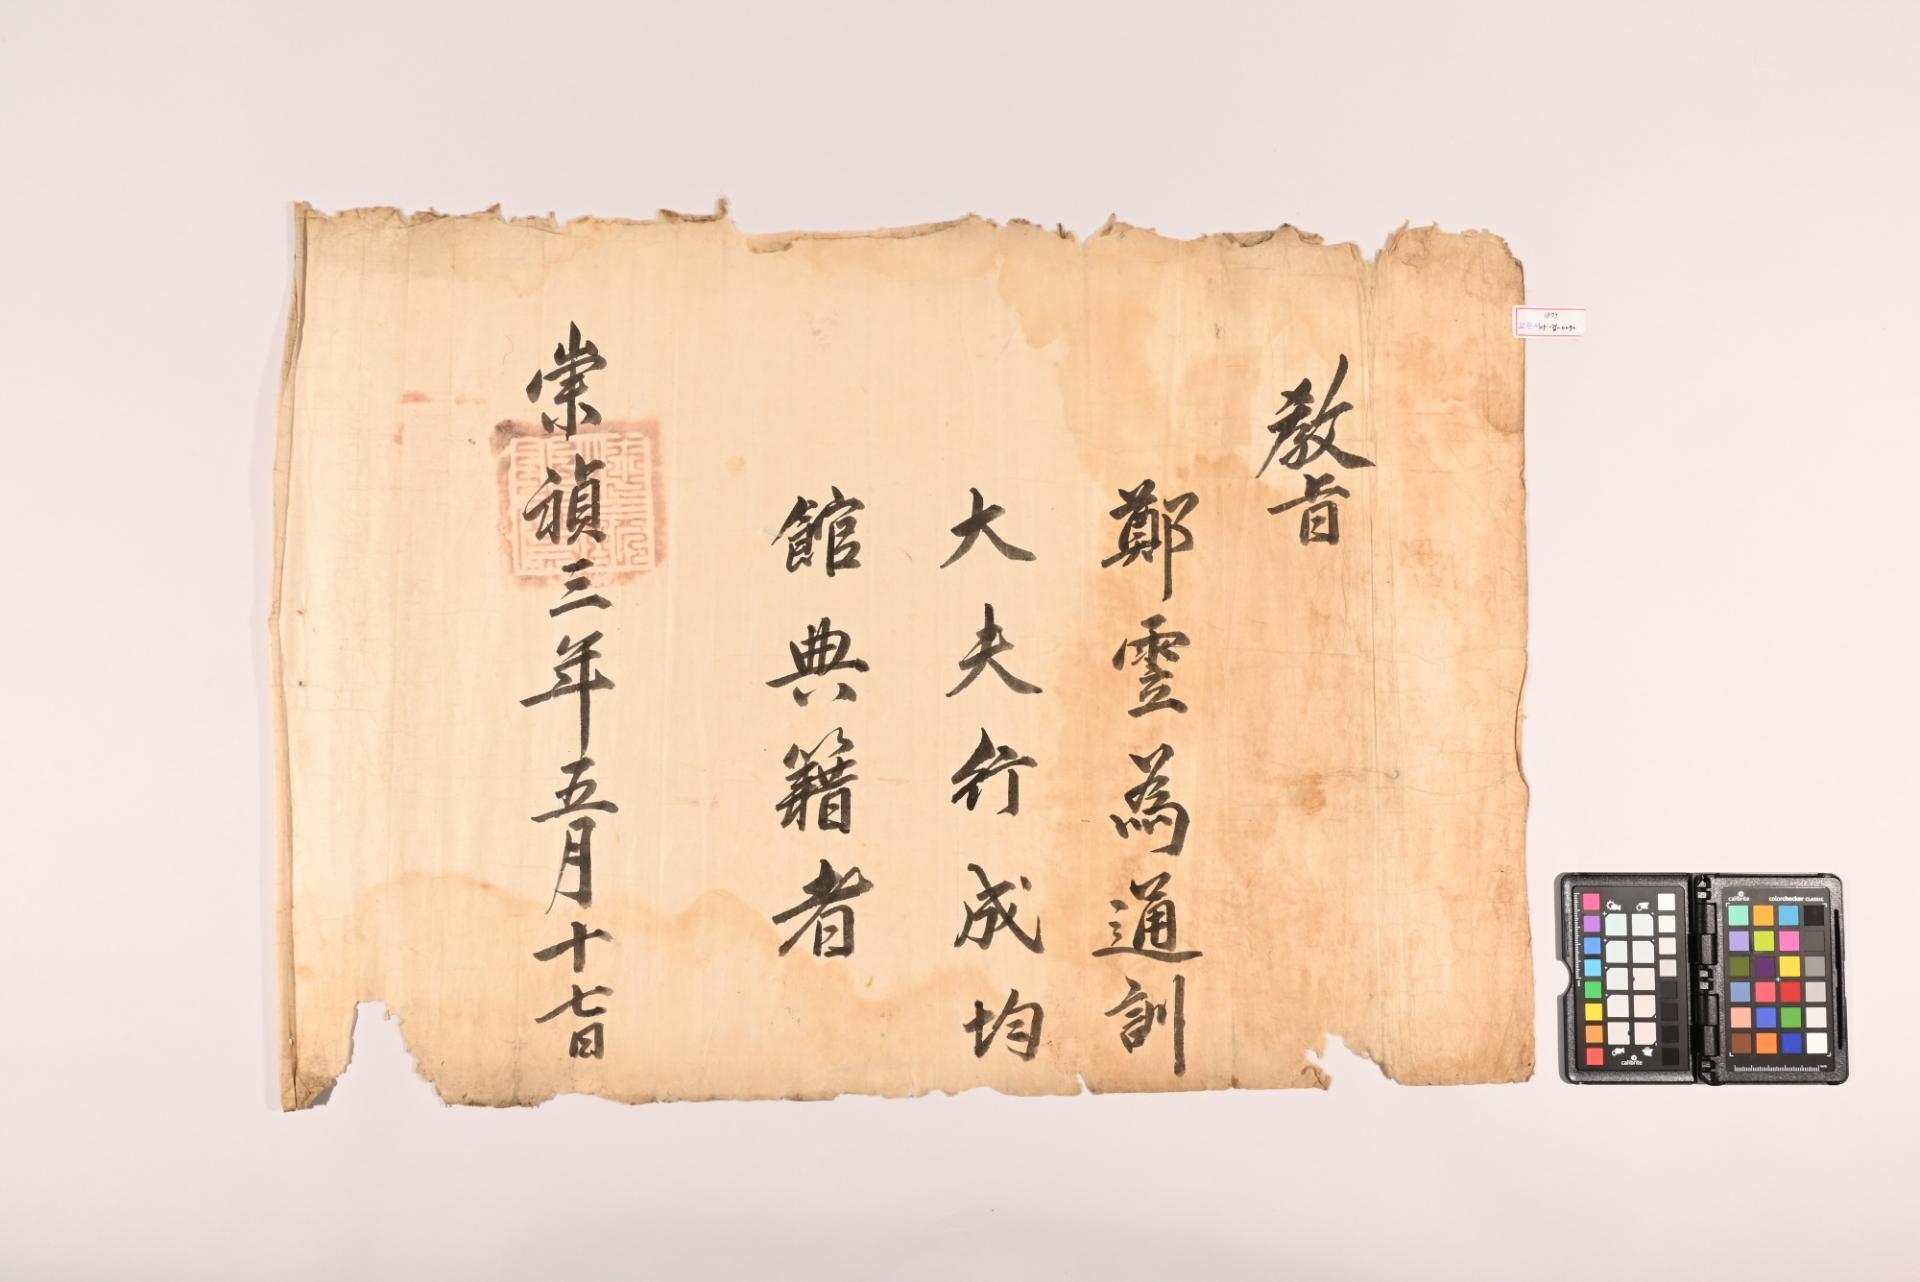 教旨
鄭霊為通訓
大夫行成均
館典籍者
崇禎三年五月十七日
calibrite
colorchecker CLASSIC
calibrite